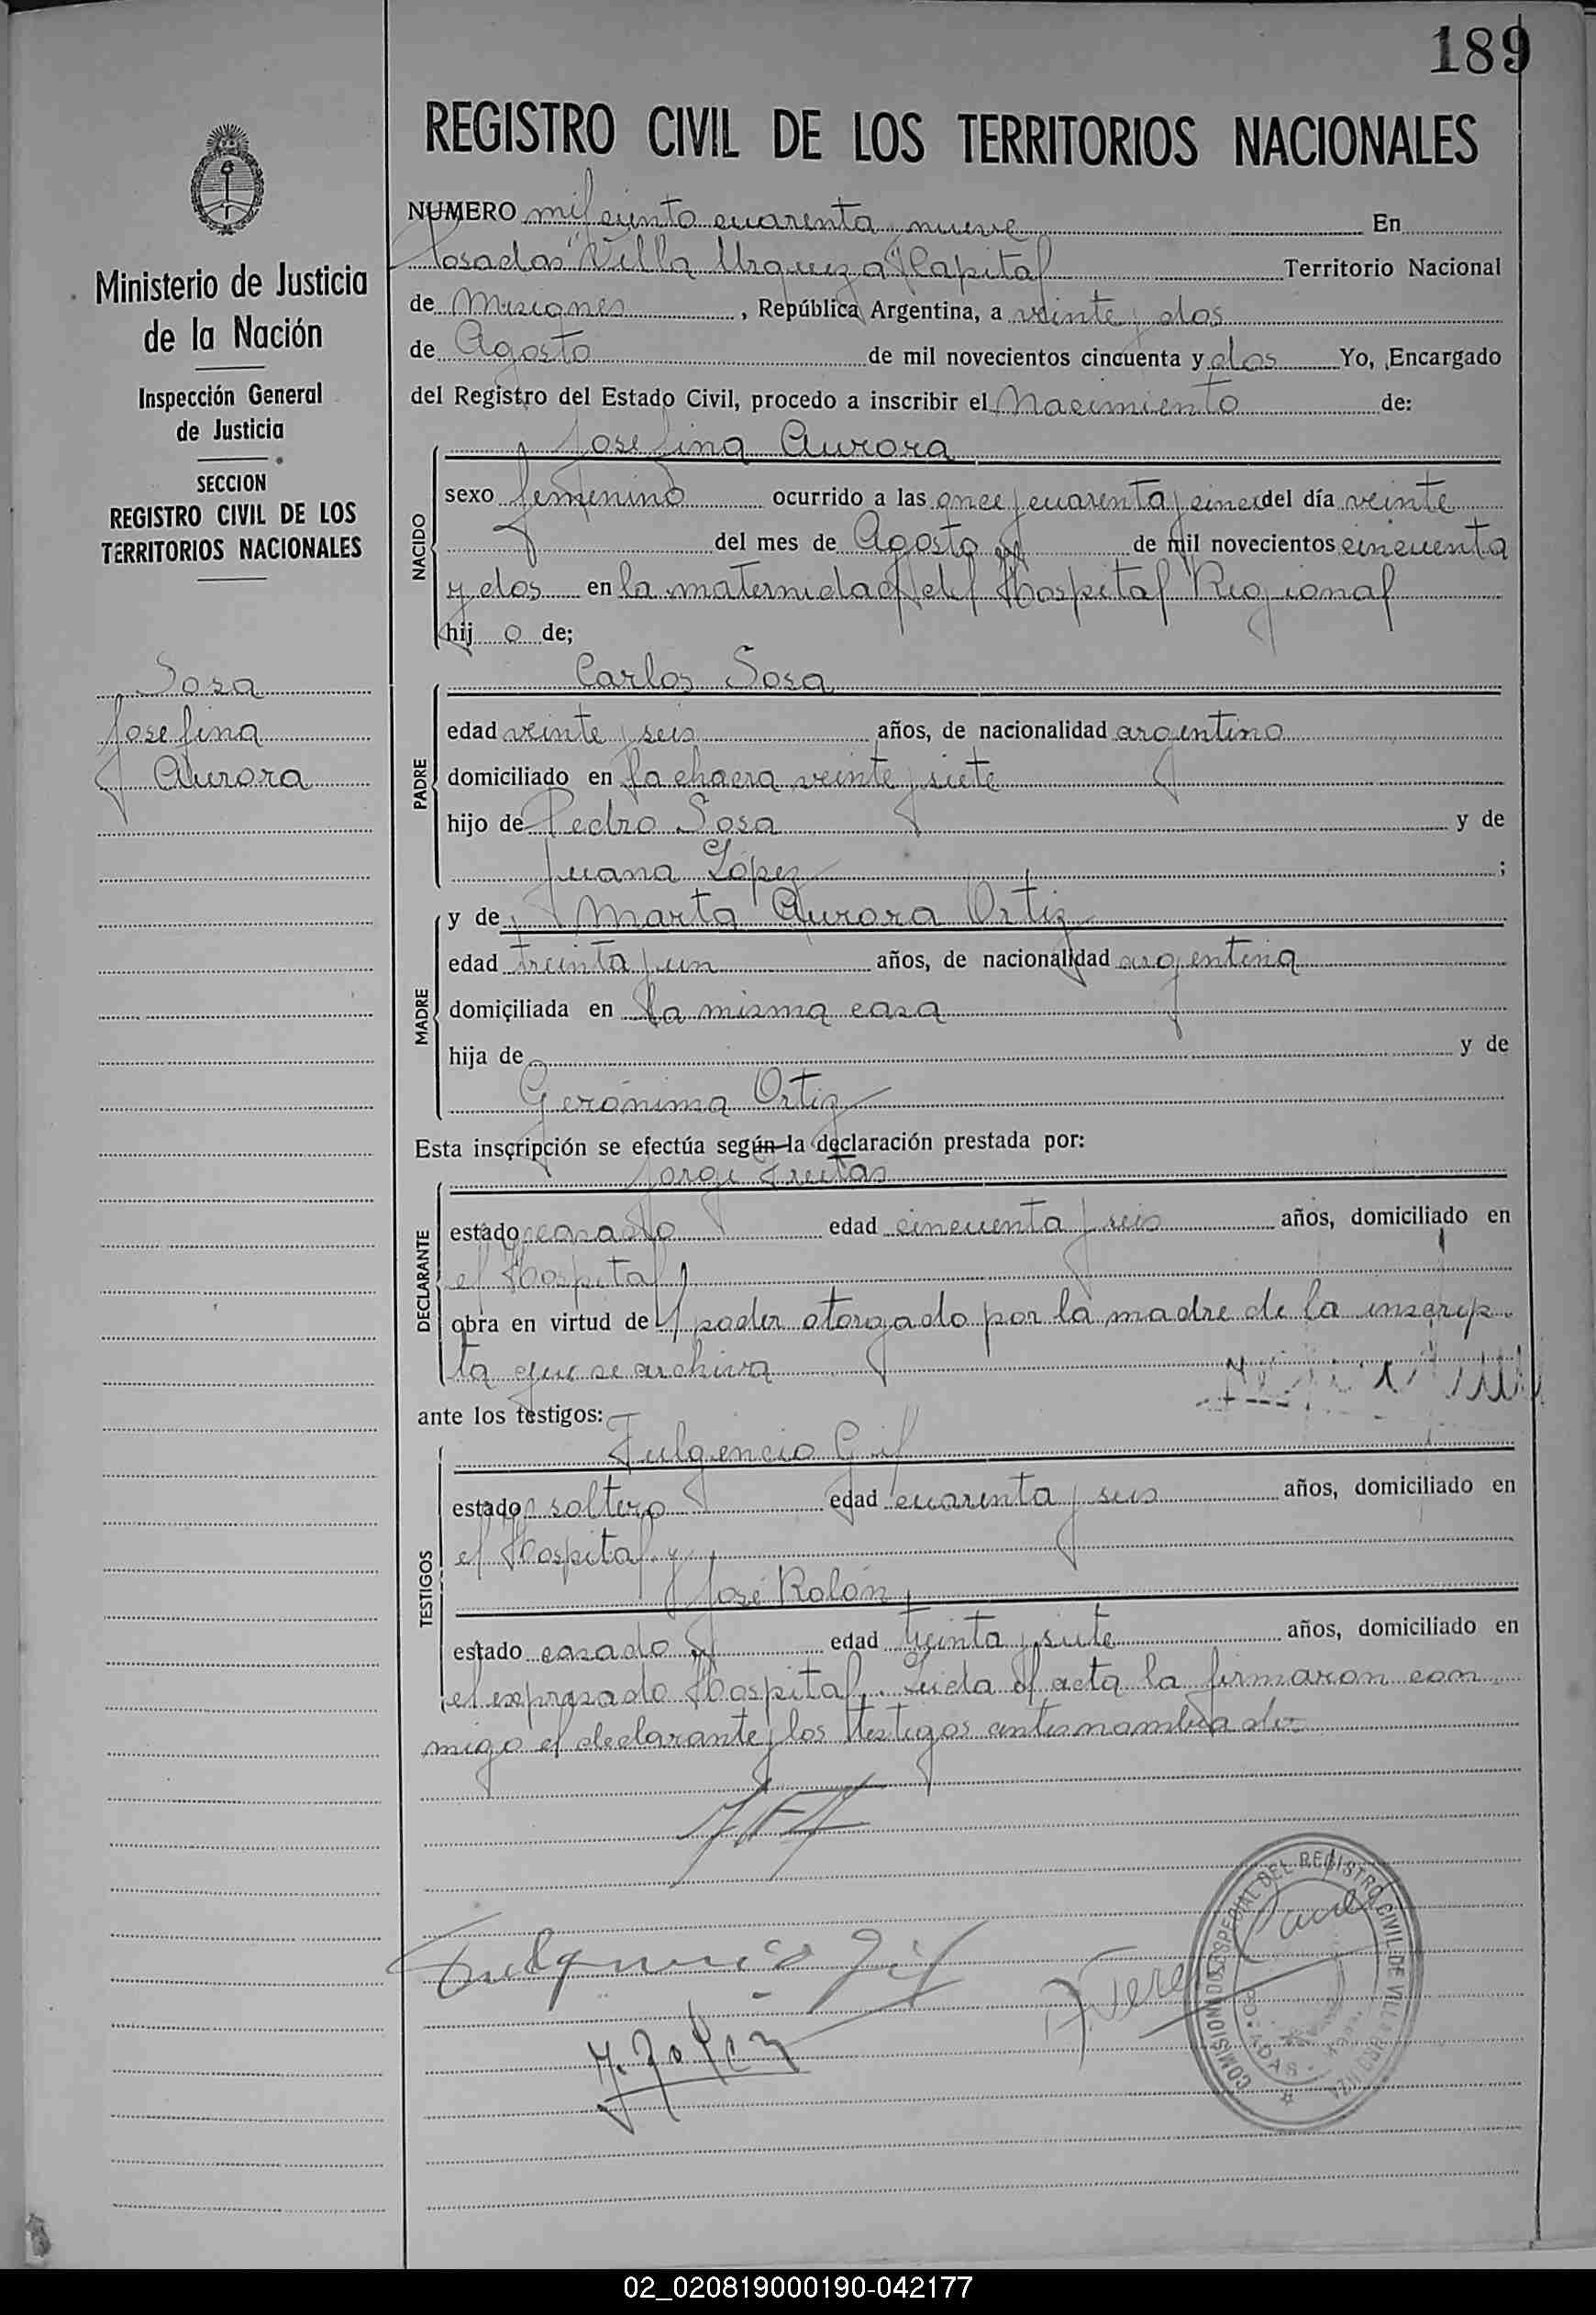 189
REGISTRO CIVIL DE LOS TERRITORIOS NACIONALES
Ministerio de Justicia
de la Nación
Inspección General
de Justicia
SECCION
REGISTRO CIVIL DE LOS
TERRITORIOS NACIONALES
Sosa
Josefina
Aurora
NUMERO mil ciento cuarenta nueve En
Posadas "Villa Urquiza" Capital Territorio Nacional
de Misiones, República Argentina, a veinte y dos
de Agosto de mil novecientos cincuenta y dos Yo, Encargado
del Registro del Estado Civil, procedo a inscribir el Nacimiento de:
NACIDO
Josefina Aurora
sexo femenino ocurrido a las once y cuarenta y cinco del día veinte
del mes de Agosto de mil novecientos cincuenta
y dos en la maternidad del Hospital Regional
hij o de;
PADRE
Carlos Sosa
edad veinte y seis años, de nacionalidad argentino
domiciliado en la chacra veinte y siete
hijo de Pedro Sosa y de
Juana López ;
MADRE
y de Marta Aurora Ortiz
edad treinta y un años, de nacionalidad argentina
domiciliada en la misma casa
hija de y de
Gerónima Ortiz
Esta inscripción se efectúa según la declaración prestada por:
DECLARANTE
Jorge Freitas
estado casado edad cincuenta y seis años, domiciliado en
el Hospital
obra en virtud del poder otorgado por la madre de la inscrip
ta que se archiva
ante los testigos:
TESTIGOS
Fulgencio Gil
estado soltero edad cuarenta y seis años, domiciliado en
el Hospital y
José Rolón
estado casado edad treinta y siete años, domiciliado en
el expresado Hospital. Leida el acta la firmaron con
migo el declarante y los testigos antesnombrados
Fulgencio Gil
J. Rolón
COMISION DE ESPECIAL DEL REGISTRO CIVIL DE VILLA URQUIZA
02_020819000190-042177